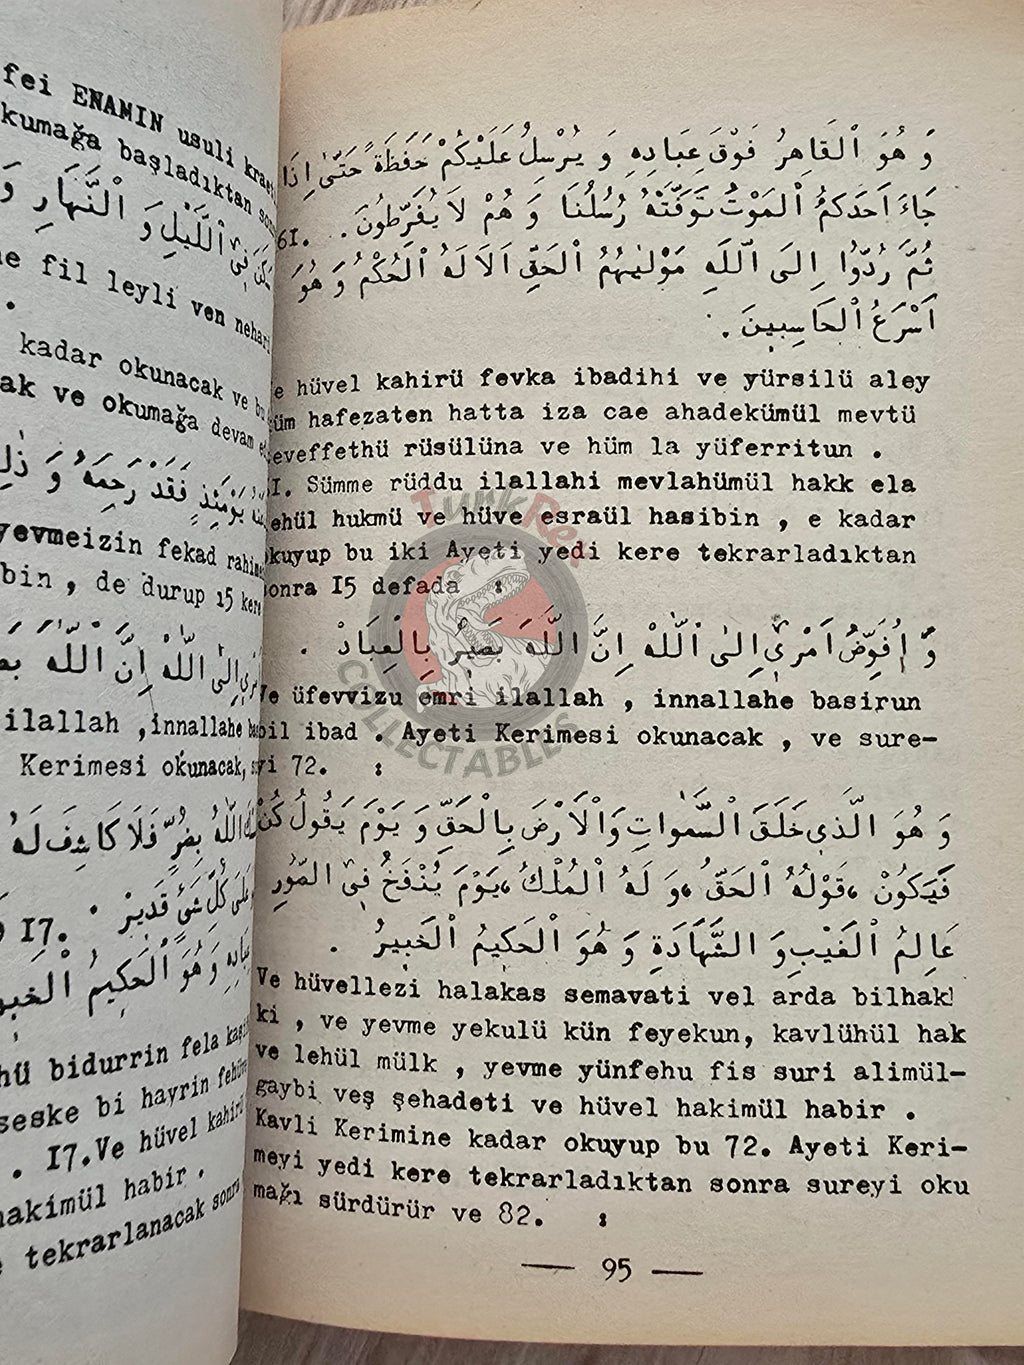 fei ENAMIN usuli
kumağa başladıktan
فِي ٱللَّيْلِ وَ ٱلنَّهَارِ وَ
fil leyli ven nehari
kadar okunacak ve bu
ak ve okumağa devam
يَوْمَئِذٍ فَقَدْ رَحِمَهُ وَ ذٰلِكَ
yevmeizin fekad rahime
bin , de durup 15 kere
اِلَى ٱللّٰهِ اِنَّ ٱللّٰهَ
ilallah ,innallahe
Kerimesi okunacak,
ٱللّٰهُ بِضُرٍّ فَلَا كَاشِفَ لَهُ
عَلَى كُلِّ شَيْءٍ قَدِيرٌ .
I7.
وَ هُوَ ٱلْحَكِيمُ ٱلْخَبِيرُ
hü bidurrin fela
seske bi hayrin
. I7.Ve hüvel kahirü
hakimül habir .
tekrarlanacak sonra
وَ هُوَ ٱلْقَاهِرُ فَوْقَ عِبَادِهِ وَ يُرْسِلُ عَلَيْكُمْ حَفَظَةً حَتَّىٰ اِذَا
جَاءَ اَحَدَكُمُ ٱلْمَوْتُ تَوَفَّتْهُ رُسُلُنَا وَ هُمْ لَا يُفَرِّطُونَ . 61.
ثُمَّ رُدُّوا اِلَى ٱللّٰهِ مَوْلٰيهُمُ ٱلْحَقِّ اَلَا لَهُ ٱلْحُكْمُ وَ هُوَ
اَسْرَعُ ٱلْحَاسِبِينَ .
e hüvel kahirü fevka ibadihi ve yürsilü aley
küm hafezaten hatta iza cae ahadekümül mevtü
eveffethü rüsülüna ve hüm la yüferritun .
6I. Sümme rüddu ilallahi mevlahümül hakk ela
lehül hukmü ve hüve esraül hasibin , e kadar
okuyup bu iki Ayeti yedi kere tekrarladıktan
sonra I5 defada :
وَ اُفَوِّضُ اَمْرِي اِلَى ٱللّٰهْ اِنَّ ٱللّٰهَ بَصِيرٌ بِالْعِبَادْ .
Ve üfevvizu emri ilallah , innallahe basirun
bil ibad . Ayeti Kerimesi okunacak , ve sure-
yi 72. :
وَ هُوَ ٱلَّذِي خَلَقَ ٱلسَّمٰوَاتِ وَٱلْاَرْضَ بِالْحَقِّ وَ يَوْمَ يَقُولُ كُنْ
فَيَكُونْ ، قَوْلُهُ ٱلْحَقُّ ، وَ لَهُ ٱلْمُلْكُ ، يَوْمَ يُنْفَخُ فِي ٱلصُّورِ
عَالِمُ ٱلْغَيْبِ وَ ٱلشَّهَادَةِ وَ هُوَ ٱلْحَكِيمُ ٱلْخَبِيرُ .
Ve hüvellezi halakas semavati vel arda bilhak
ki , ve yevme yekulü kün feyekun, kavlühül hak
ve lehül mülk , yevme yünfehu fis suri alimül-
gaybi veş şehadeti ve hüvel hakimül habir .
Kavli Kerimine kadar okuyup bu 72. Ayeti Keri-
meyi yedi kere tekrarladıktan sonra sureyi oku
mağı sürdürür ve 82. :
— 95 —
Turk Rex
COLLECTABLES